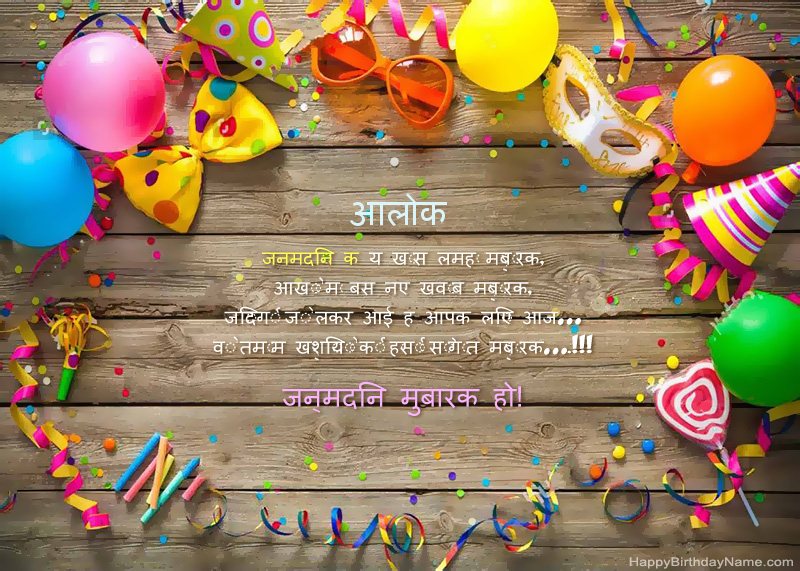 आलोक
जनमदनि क य खास लमह मबारक,
आखों में बस नए खवाब मबारक,
जदिगी जो लेकर आई ह आपक लएि आज...
वो तमाम खशयिों की हसीं सौगात मबारक...!!!
जन्मदनि मुबारक हो!
HappyBirthdayName.com